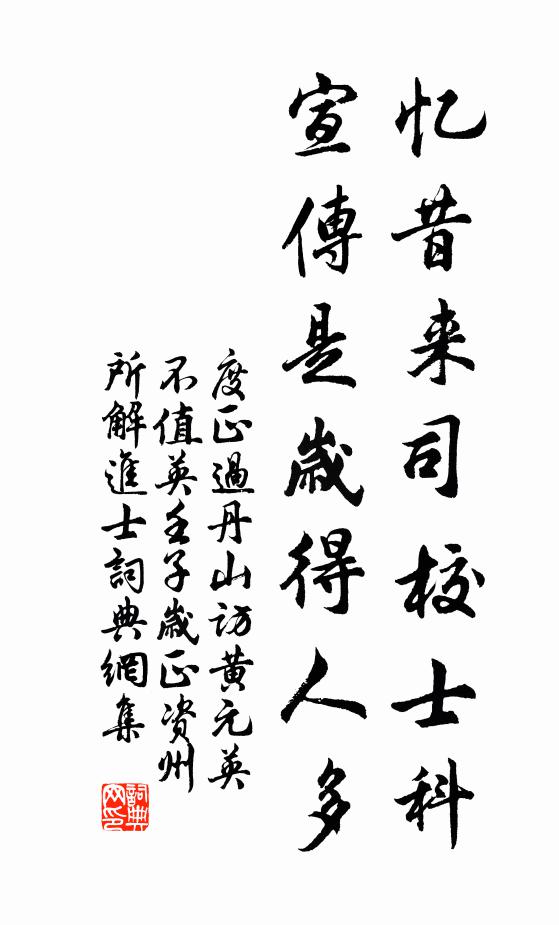 忆昔来司校士科
宣傳是歲得人多
度正過丹山訪黄元英
不值英壬子歲正资州
所解進士詞典網集
詞典网印